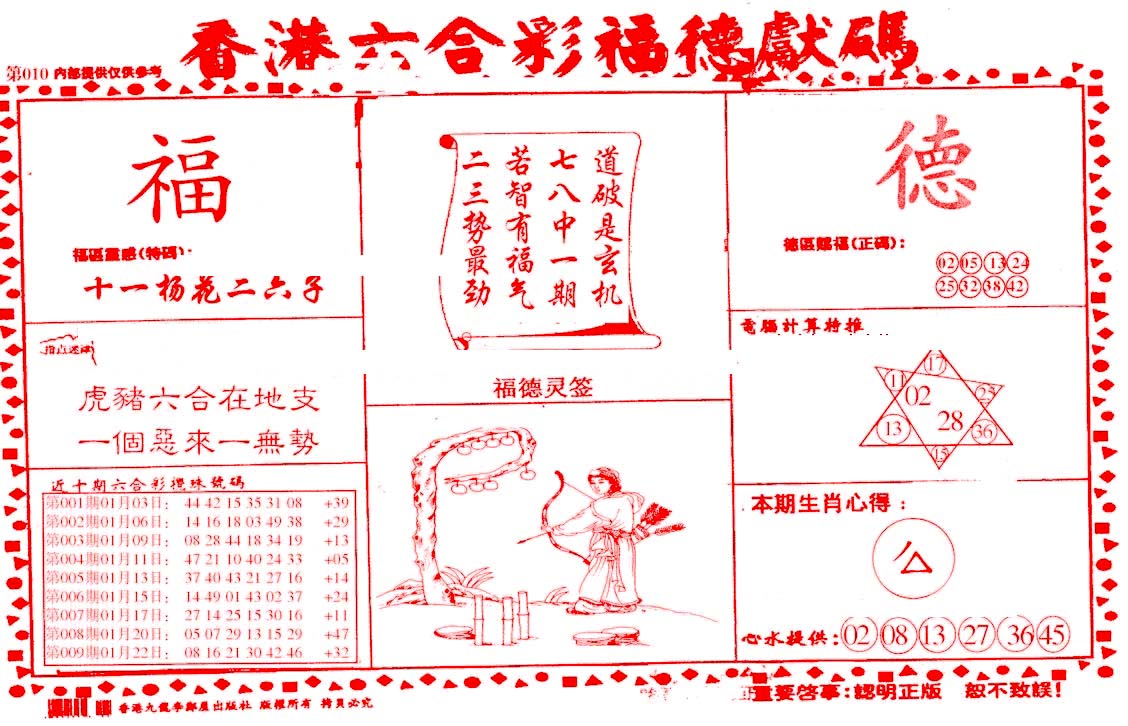 香港六合彩福德獻碼
第010 内部提供仅供参考
福
福區靈感(特碼):
十一杨花二六子
道破是玄机
七八中一期
若智有福气
二三势最劲
德
德區賜福(正碼):
02 05 13 24
25 32 38 42
指点迷津
虎豬六合在地支
一個惡來一無勢
電腦計算特推
17
11 02 25
28
13 36
15
福德灵签
近十期六合彩攪珠號碼
第001期01月03日: 44 42 15 35 31 08 +39
第002期01月06日: 14 16 18 03 49 38 +29
第003期01月09日: 08 28 44 18 34 19 +13
第004期01月11日: 47 21 10 40 24 33 +05
第005期01月13日: 37 40 43 21 27 16 +14
第006期01月15日: 14 49 01 43 02 37 +24
第007期01月17日: 27 14 25 15 30 16 +11
第008期01月20日: 05 07 29 13 15 29 +47
第009期01月22日: 08 16 21 30 42 46 +32
本期生肖心得:
心水提供: 02 08 13 27 36 45
香港九龍李鄭屋出版社 版權所有 拷貝必究
重要啓事:認明正版 恕不致誤!